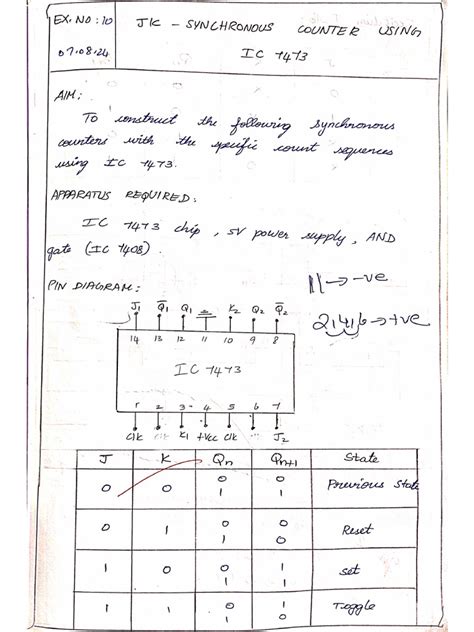 EX. NO : 10
07.08.24
JK - SYNCHRONOUS COUNTER USING
IC 7473
AIM :
To construct the following synchronous
counters with the specific count sequences
using IC 7473.
APPARATUS REQUIRED :
IC 7473 chip , 5V power supply, AND
gate (IC 7408).
PIN DIAGRAM :
11 → -ve
2,14,16 → +ve
J1 Q̅1 Q1 K2 Q2 Q̅2
14 13 12 11 10 9 8
IC 7473
1 2 3 4 5 6 7
Clk ... K1 +Vcc Clk ... J2
J K Qn Qn+1 State
0 0 0 0 Previous State
1 1
0 1 0 0 Reset
1 0
1 0 0 1 Set
1 1
1 1 0 1 Toggle